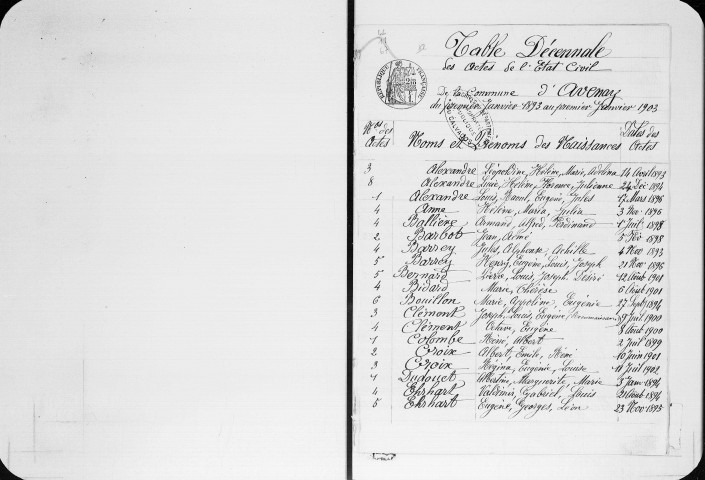 Table Décennale
des Actes de l'Etat Civil
De la Commune d'Avenay
du premier Janvier 1893 au premier Janvier 1903
Nos des Actes Noms et Prénoms des Naissances Dates des Actes
3 Alexandre Léopoldine, Hélène, Marie, Adelina 14 Avril 1893
8 Alexandre Lucie, Hélène, Florence, Julienne 24 Déc 1894
1 Alexandre Louis, Raoul, Eugène, Jules 17 Mars 1896
4 Anne Hélène, Maria, Julia 3 Nov 1896
4 Ballière Armand, Alfred, Ferdinand 1 Juil 1898
2 Barbot Jean, Aimé 5 Fév 1898
4 Barrey Jules, Alphonse, Achille 4 Nov 1893
5 Barrey Henry, Eugène, Louis, Joseph 21 Nov 1896
5 Bernard Pierre, Louis, Joseph, Désiré 12 Août 1901
4 Bidard Marie, Thérèse 6 Août 1901
6 Bouillon Marie, Appoline, Eugénie 27 Sept 1894
3 Clément Joseph, Louis, Eugène 9 Juil 1900
4 Clément Octave, Eugène 8 Août 1900
1 Colombe René, Albert 2 Juil 1899
2 Croix Albert, Emile, Rémi 10 Juin 1901
3 Croix Régina, Eugénie, Louise 11 Juil 1902
1 Dudouet Albertine, Marguerite, Marie 3 Janv 1894
4 Ehrhart Valdémir, Gabriel, Louis 21 Août 1894
5 Ehrhart Eugène, Georges, Léon 23 Nov 1895
RÉPUBLIQUE FRANÇAISE
CALVADOS